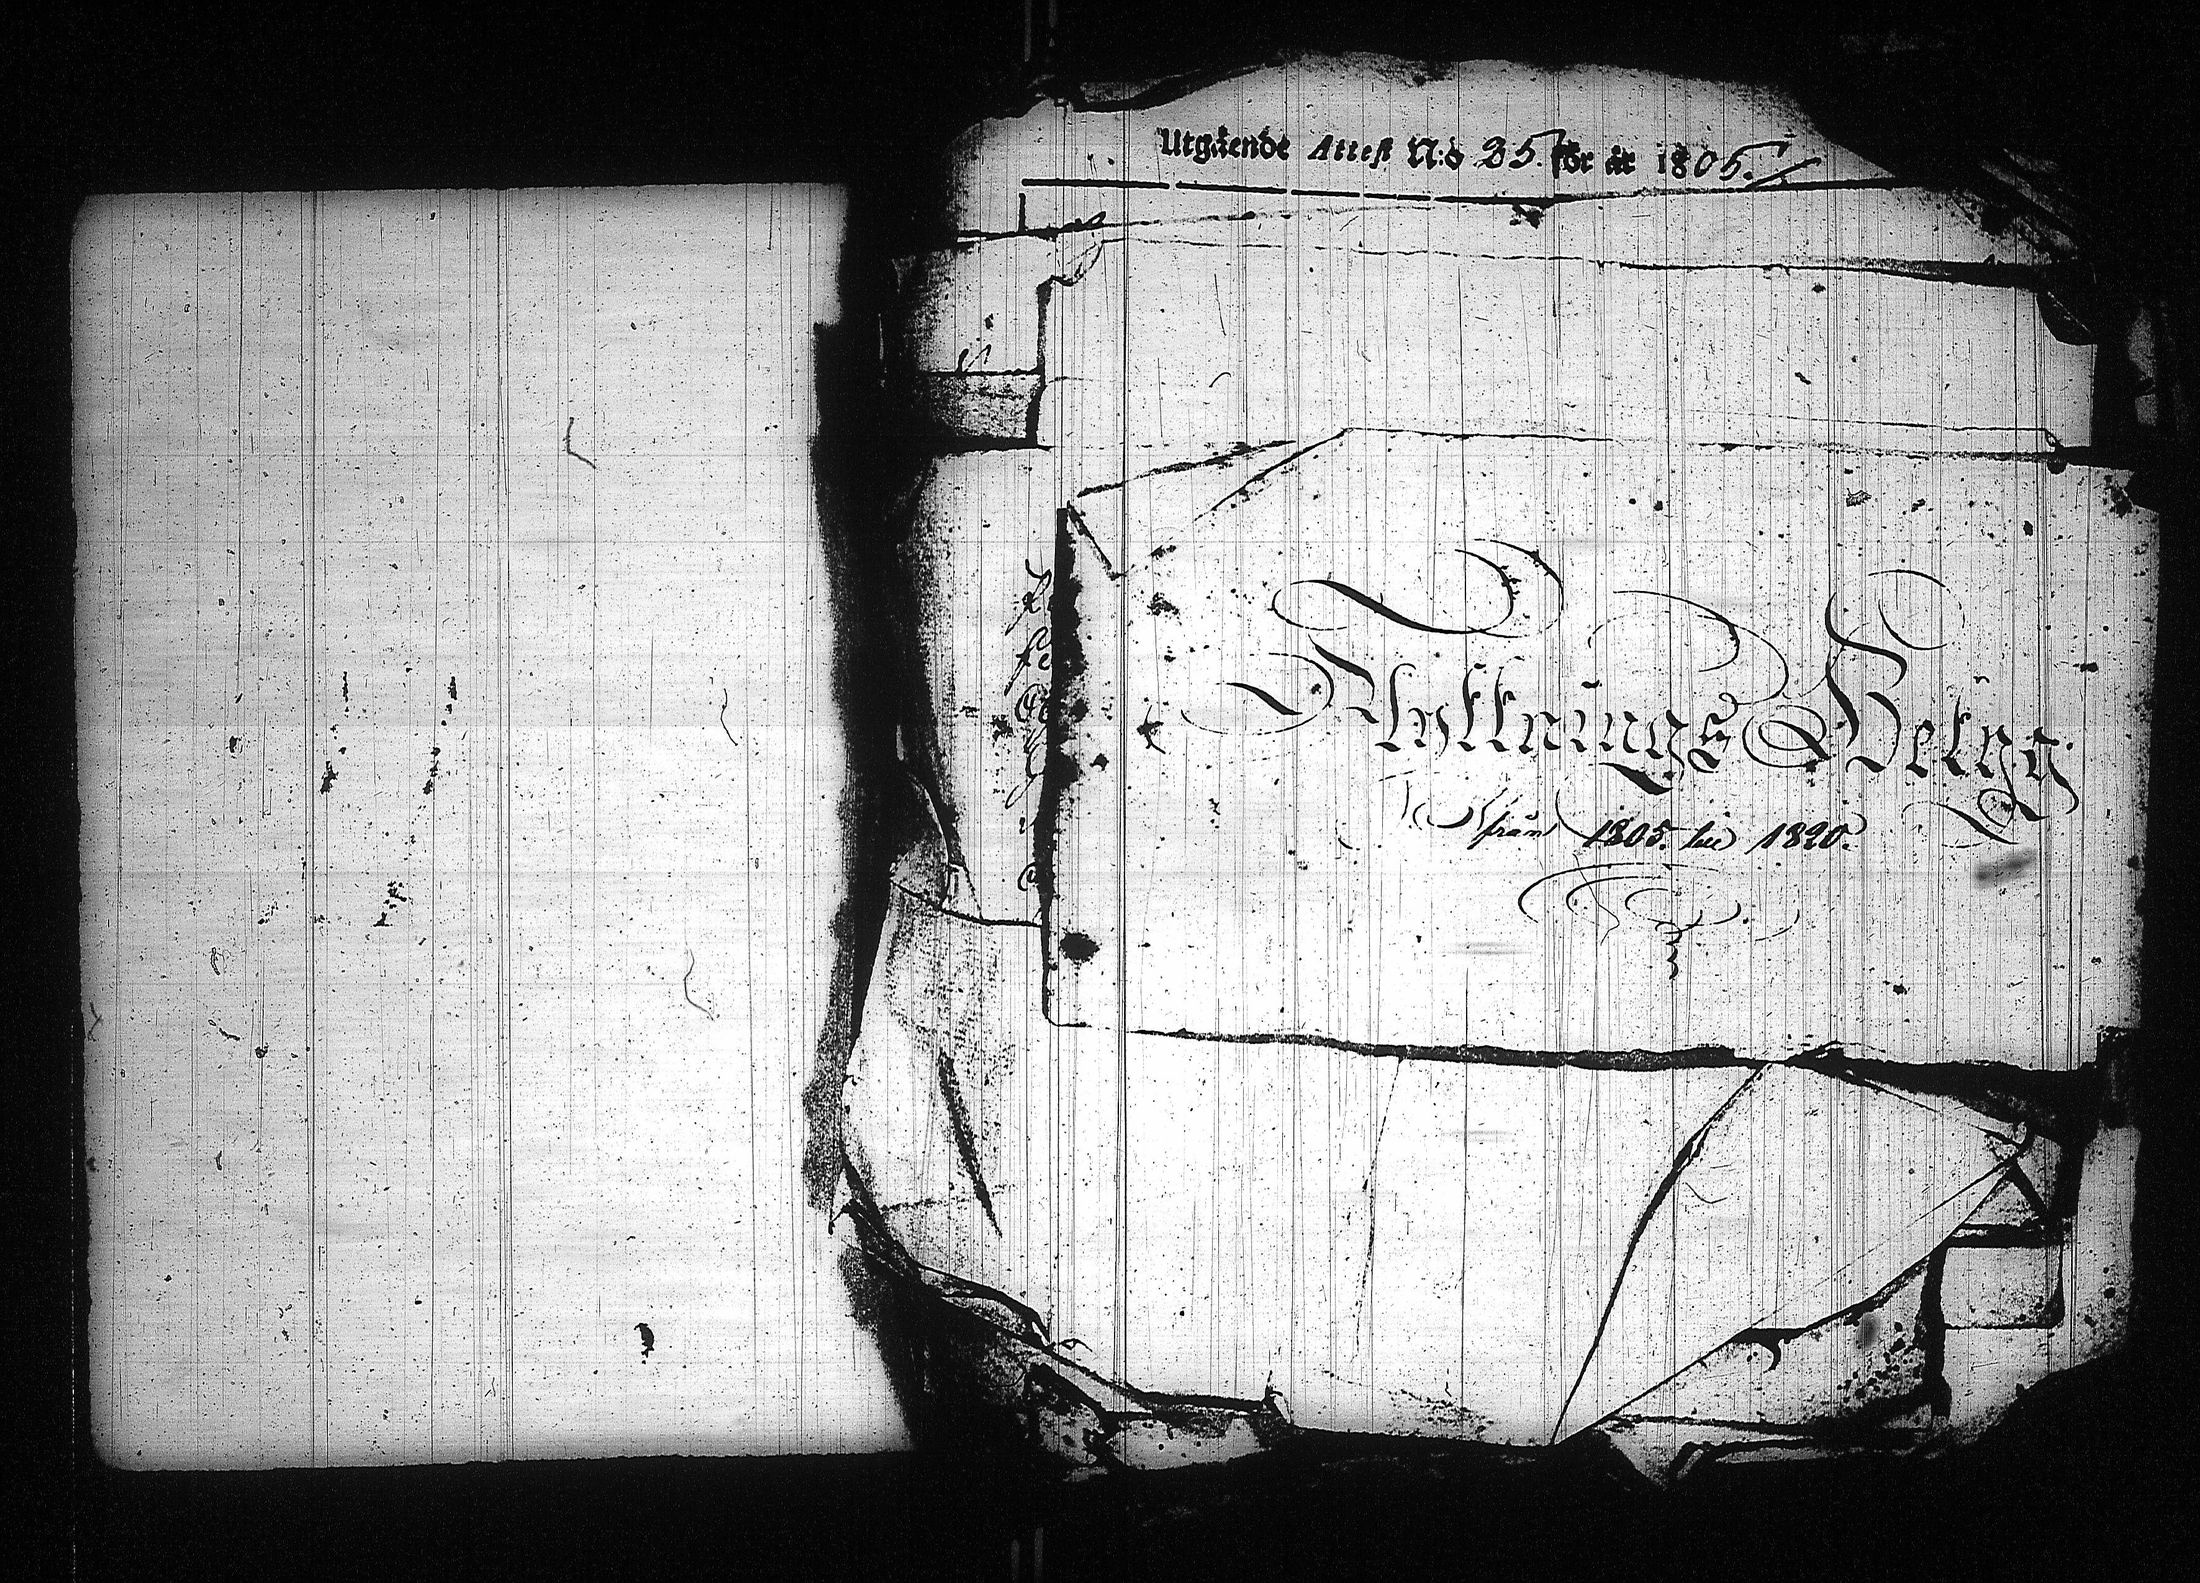 Utgående Attest N:o 25. för år 1805.
Flyttnings Betyg
från 1805. till 1820.